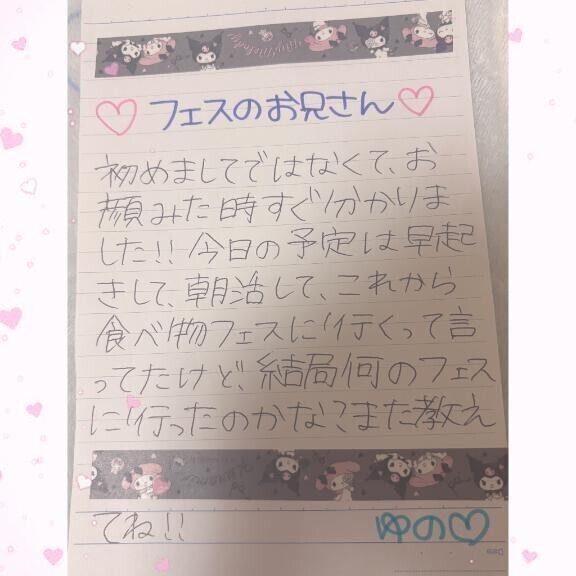 ♡フェスのお兄さん♡
初めましてではなくて、お
顔みた時すぐ分かりま
した!! 今日の予定は早起
きして、朝活して、これから
食べ物フェスに行くって言
ってたけど、結局何のフェス
に行ったのかな?また教え
てね!!
ゆの♡